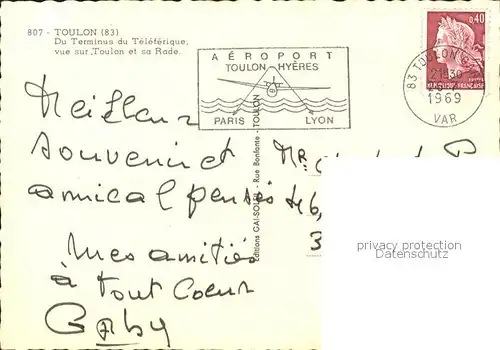 807 - TOULON (83)
Du Terminus du Téléférique,
vue sur Toulon et sa Rade.
AÉROPORT
TOULON-HYÈRES
PARIS LYON
0,40
83 TOULON
21H30
1969
VAR
Editions GAI-SOLEIL - Rue Bonfante - TOULON
Meilleur
Souvenir et
amical pensés
Mes amitiés
à tout Coeur
Gaby
Mr
46,
3
privacy protection
Datenschutz